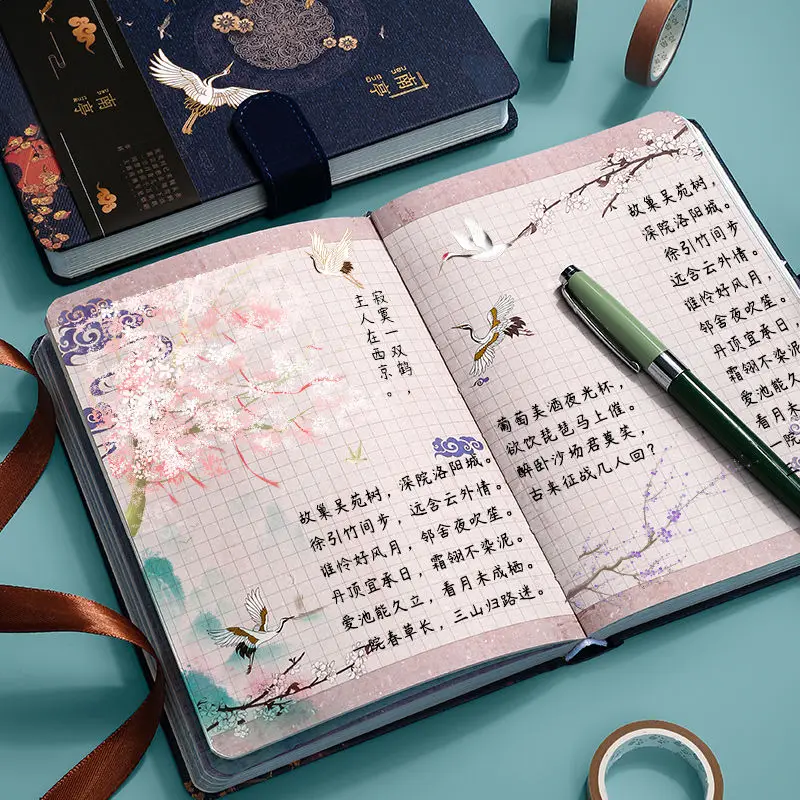 南亭
nán tíng
南亭
nán tíng
寂寞一双鹤，
主人在西京。
故巢吴苑树，深院洛阳城。
徐引竹间步，远含云外情。
谁怜好风月，邻舍夜吹笙。
丹顶宜承日，霜翎不染泥。
爱池能久立，看月未成栖。
一院春草长，三山归路迷。
故巢吴苑树，
深院洛阳城。
徐引竹间步
远含云外情。
谁怜好风月，
邻舍夜吹笙。
丹顶宜承日，
霜翎不染泥
爱池能久立
看月未成栖
一院
葡萄美酒夜光杯，
欲饮琵琶马上催。
醉卧沙场君莫笑，
古来征战几人回？